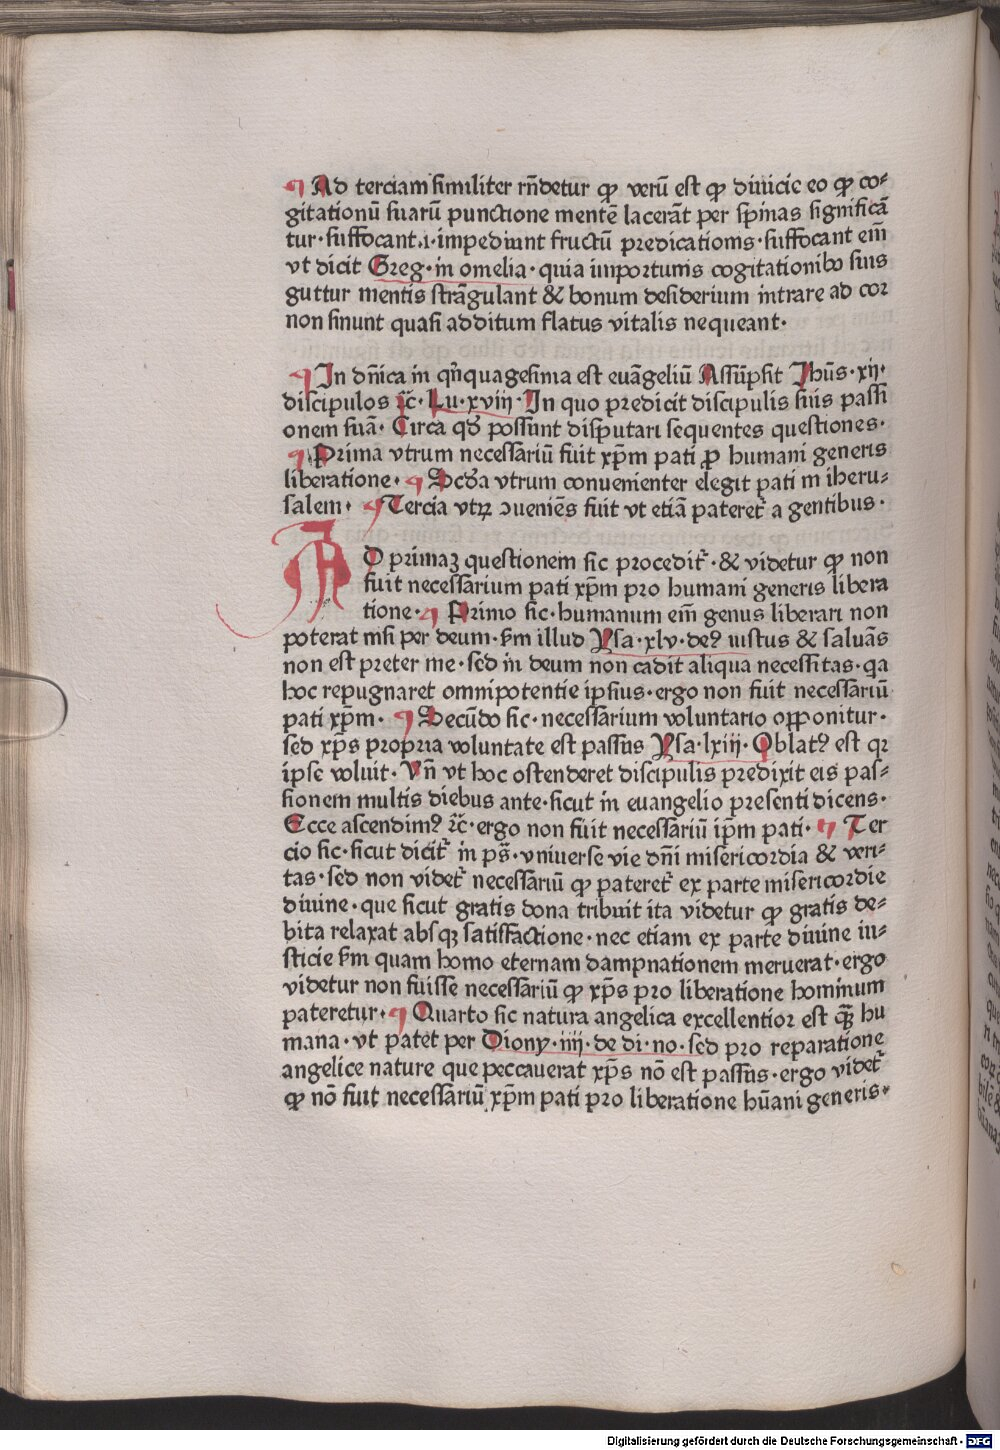 ¶ Ad terciam similiter rñdetur ꝙ verū est ꝙ diuicie eo ꝙ co-
gitationū suarū punctione mentē lacerāt per spinas significā
tur·suffocant.i·impediunt fructū predicationis·suffocant em̄
vt dicit Greg·in omelia·quia importunis cogitationibꝰ suis
guttur mentis strāgulant & bonum desiderium intrare ad cor
non sinunt quasi additum flatus vitalis nequeant·
¶ In dñica in qñquagesima est euāgeliū Assūpsit Jhūs·xij·
discipulos ⁊c̄·Lu·xviij·In quo predicit discipulis suis passi
onem suā· Circa qd̄ possunt disputari sequentes questiones·
¶ Prima vtrum necessariū fuit xp̄m pati ꝓ humani generis
liberatione· ¶ Scd̄a vtrum conuenienter elegit pati in iheru-
salem· ¶ Tercia vtꝝ ↄueniēs fuit vt etiā pateret᷑ a gentibus·
AD primaꝫ questionem sic procedit᷑·& videtur ꝙ non
fuit necessarium pati xp̄m pro humani generis libera
tione·¶ Primo sic·humanum em̄ genus liberari non
poterat nisi per deum·ẜm illud Ysa·xlv·deꝰ iustus & saluās
non est preter me·sed in deum non cadit aliqua necessitas·qa
hoc repugnaret omnipotentie ipsius·ergo non fuit necessariū
pati xp̄m· ¶ Secūdo sic·necessarium voluntario opponitur·
sed xp̄s propria voluntate est passus Ysa·lxiij·Oblatꝰ est qꝛ
ipse voluit· Vñ vt hoc ostenderet discipulis predixit eis pas-
sionem multis diebus ante·sicut in euangelio presenti dicens·
Ecce ascendimꝰ ⁊c̄·ergo non fuit necessariū ip̄m pati·¶ Ter
cio sic·sicut dicit᷑ in ps̄·vniuerse vie dñi misericordia & veri-
tas·sed non videt᷑ necessariū ꝙ pateret᷑ ex parte misericordie
diuine·que sicut gratis dona tribuit ita videtur ꝙ gratis de-
bita relaxat absqꝫ satisfactione·nec etiam ex parte diuine iu-
sticie ẜm quam homo eternam dampnationem meruerat·ergo
videtur non fuisse necessariū ꝙ xp̄s pro liberatione hominum
pateretur·¶ Quarto sic natura angelica excellentior est qꝫ̄ hu
mana·vt patet per Diony·iiij·de di·no·sed pro reparatione
angelice nature que peccauerat xp̄s nō est passus·ergo videt᷑
ꝙ nō fuit necessariū xp̄m pati pro liberatione hūani generis·
Digitalisierung gefördert durch die Deutsche Forschungsgemeinschaft - DFG